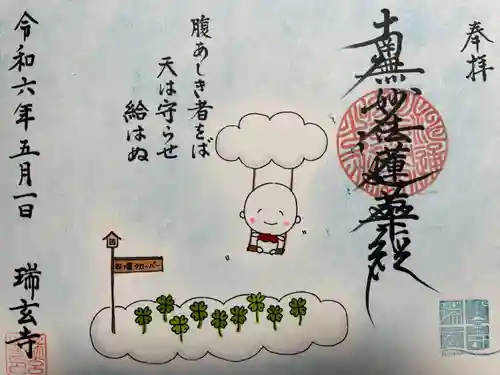 奉拝
南無妙法蓮華経
腹あしき者をば
天は守らせ
給はぬ
四つ葉クローバー
令和六年五月一日
瑞玄寺